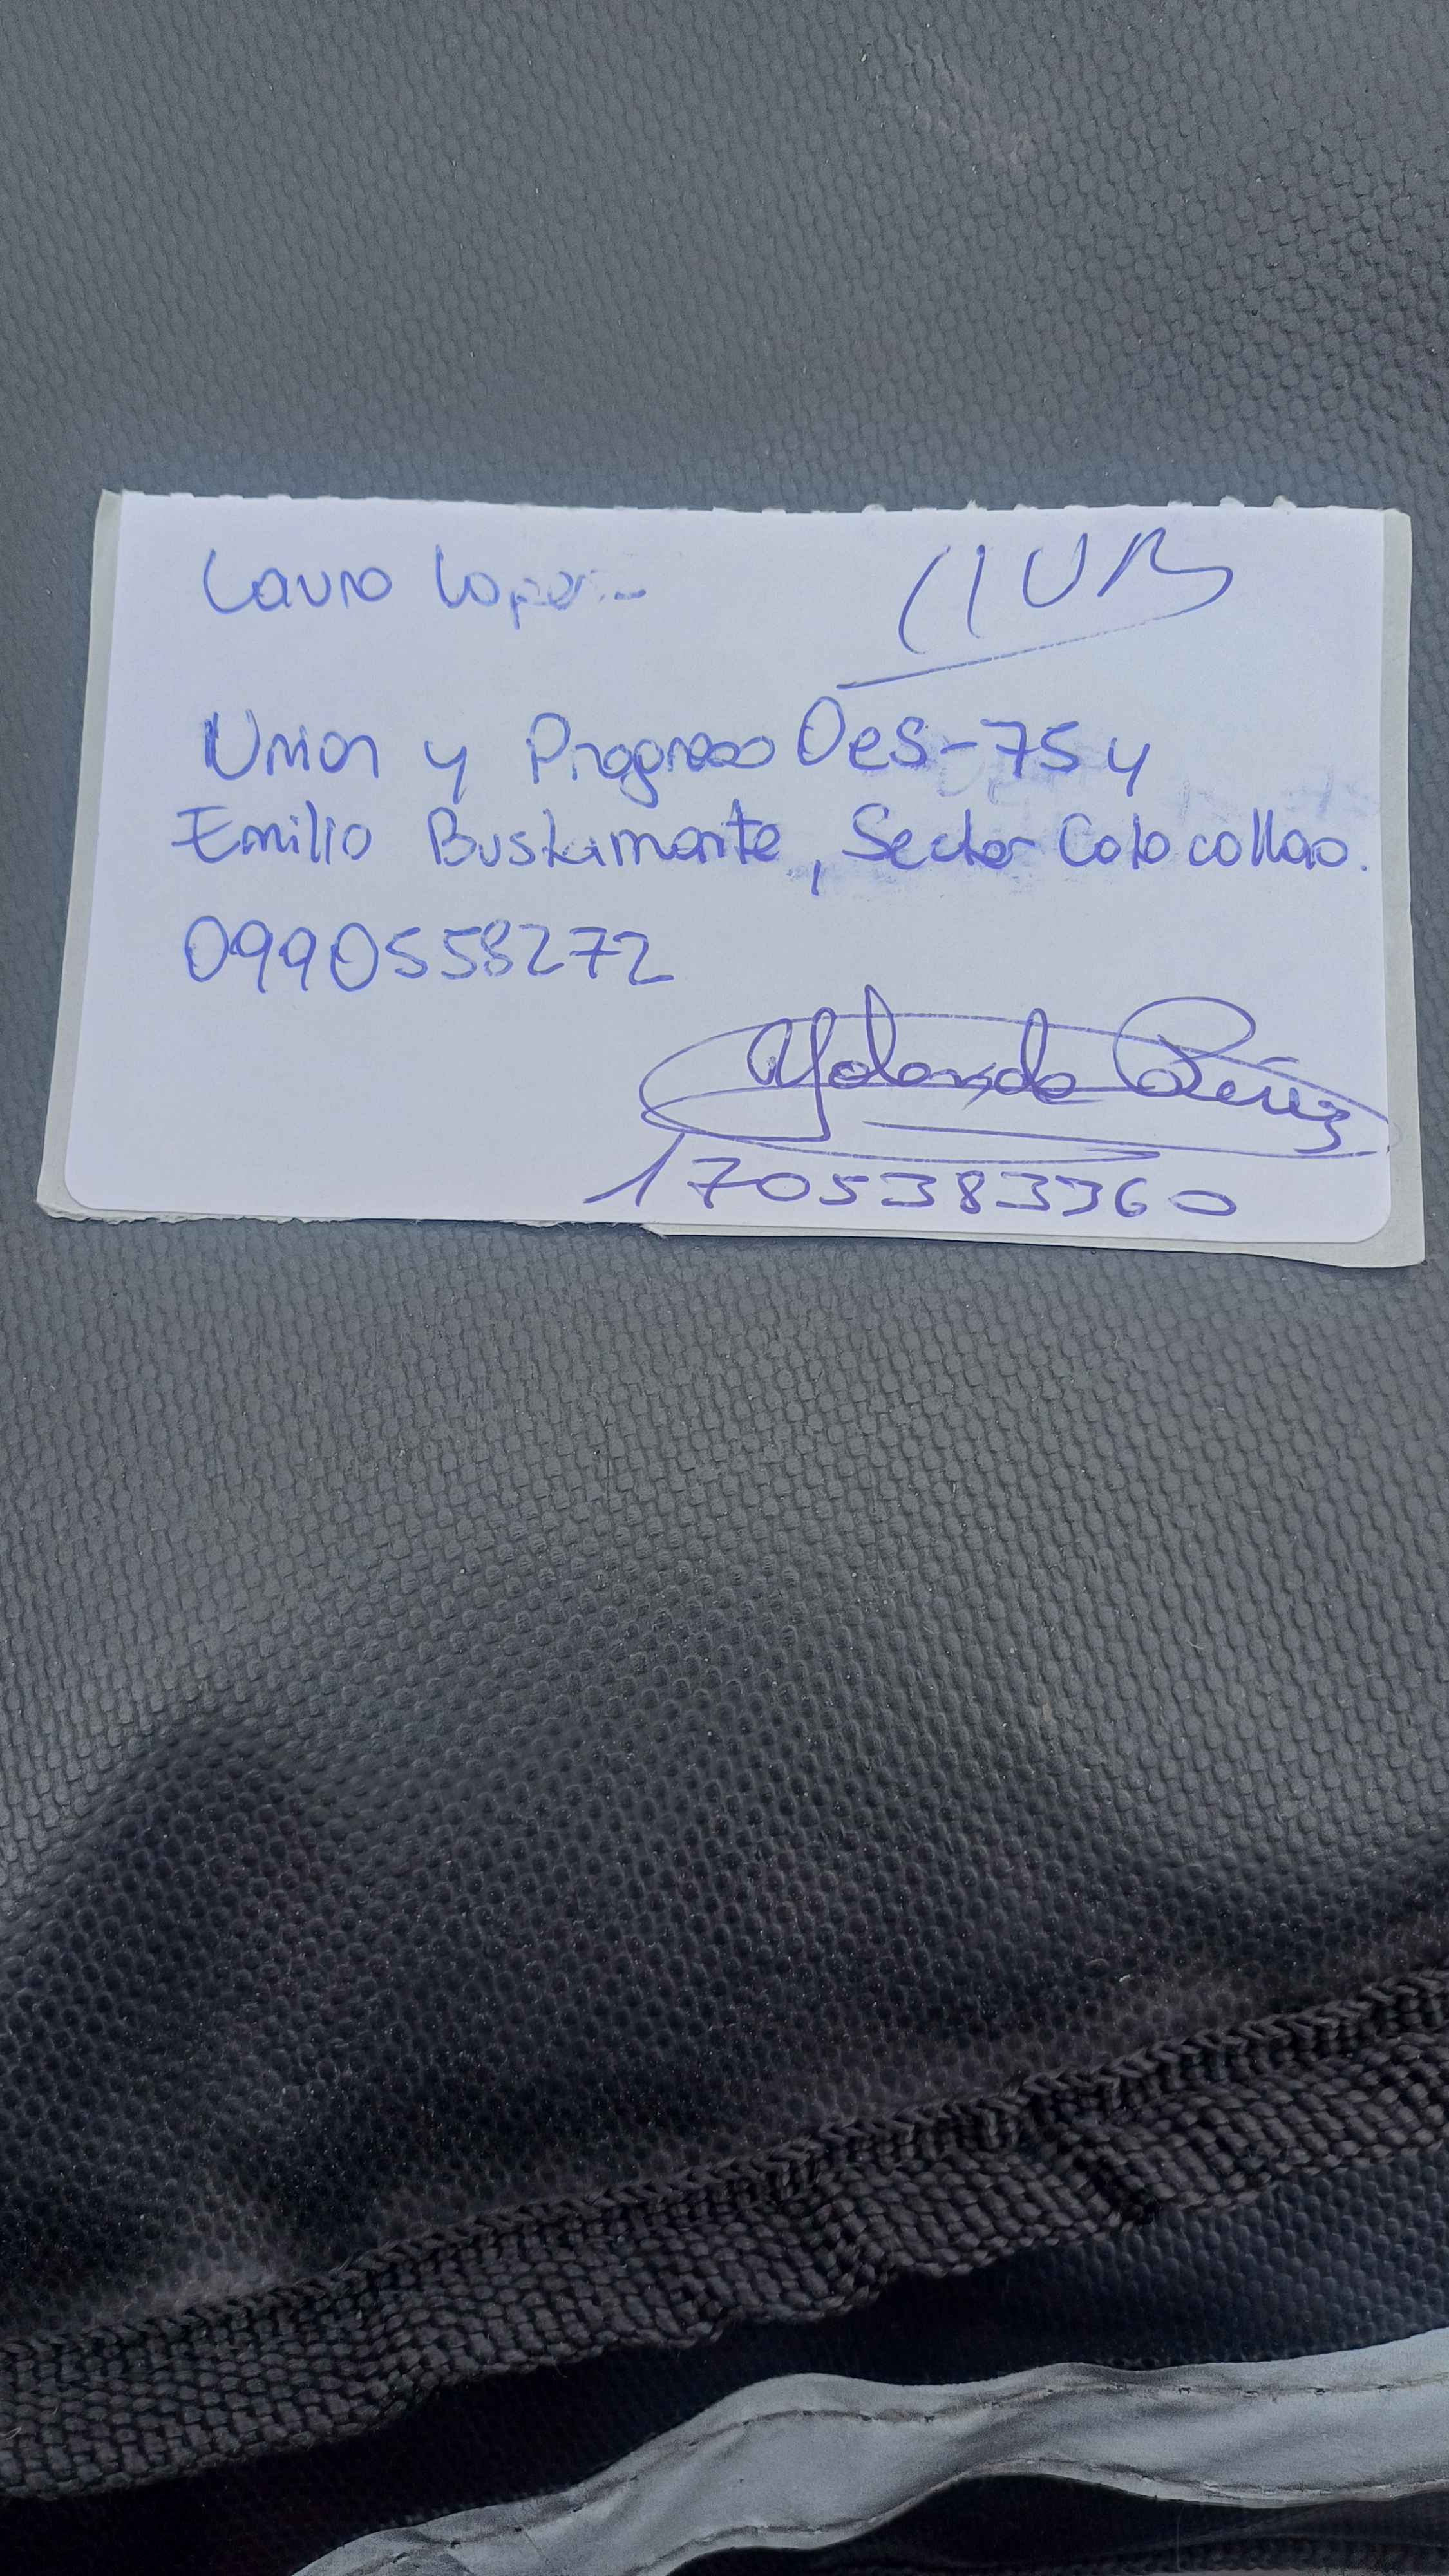 Laura Lopez
Union y Progreso Oe5-75 y
Emilio Bustamante, Sector Cotocollao.
0990558272
Yolanda Pérez
1705383360